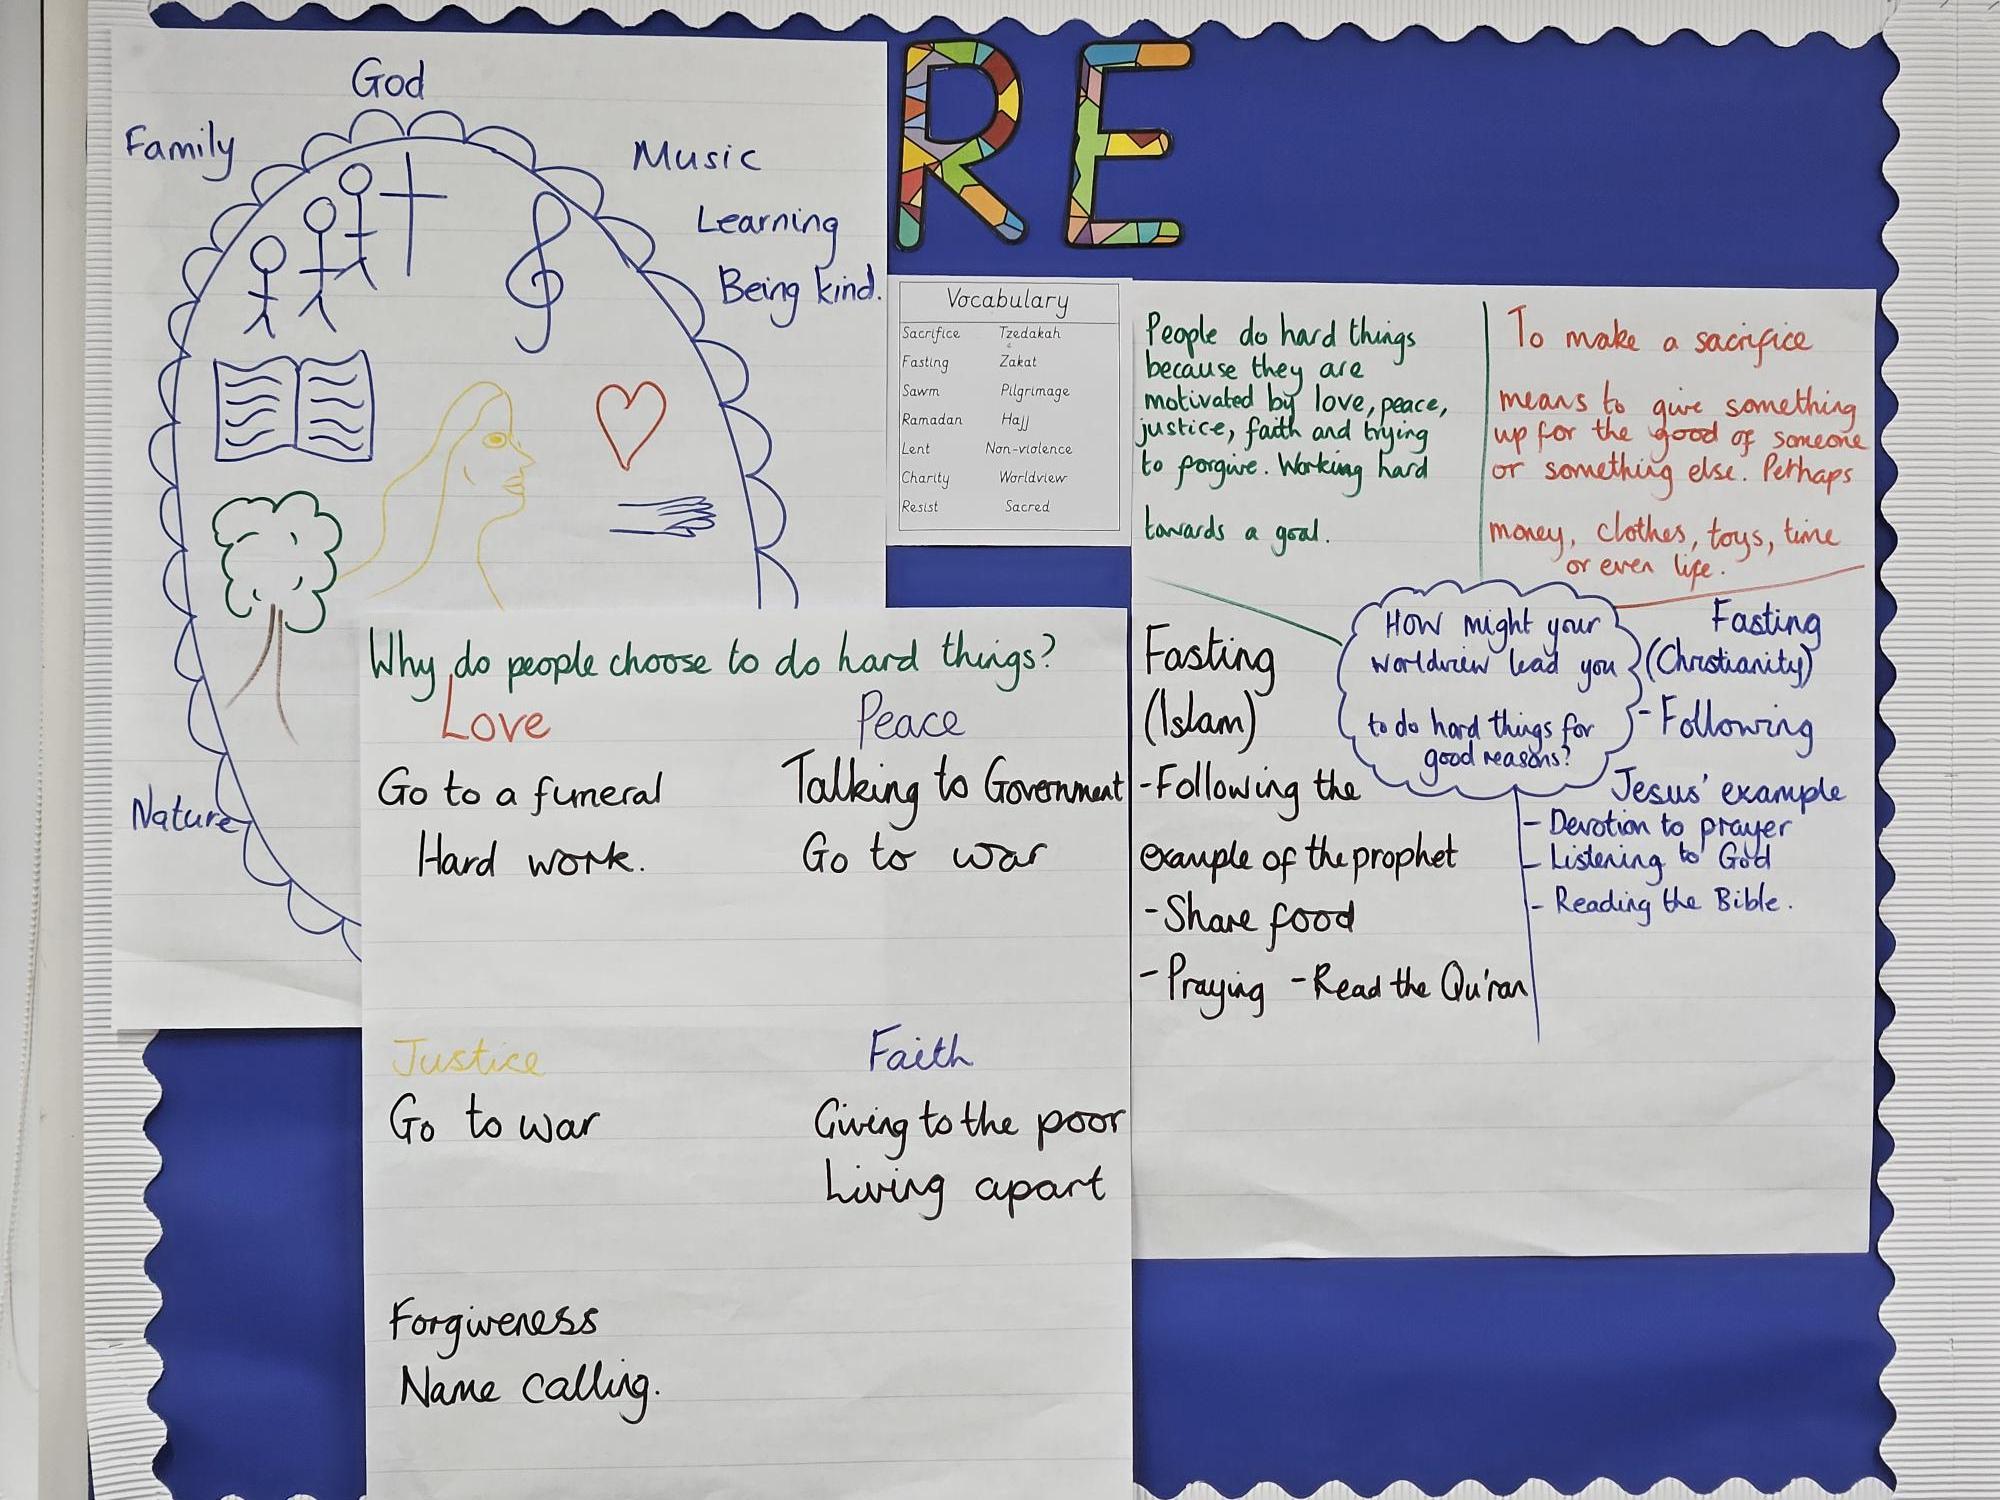 God
Family
Music
Learning
Being kind.
Nature
RE
Vocabulary
Sacrifice Tzedakah
Fasting Zakat
Sawm Pilgrimage
Ramadan Hajj
Lent Non-violence
Charity Worldview
Resist Sacred
Why do people choose to do hard things?
Love
Go to a funeral
Hard work.
Peace
Talking to Government
Go to war
Justice
Go to war
Faith
Giving to the poor
Living apart
Forgiveness
Name calling.
People do hard things
because they are
motivated by love, peace,
justice, faith and trying
to forgive. Working hard
towards a goal.
To make a sacrifice
means to give something
up for the good of someone
or something else. Perhaps
money, clothes, toys, time
or even life.
How might your
worldview lead you
to do hard things for
good reasons?
Fasting
(Islam)
-Following the
example of the prophet
-Share food
-Praying -Read the Qu'ran
Fasting
(Christianity)
-Following
Jesus' example
- Devotion to prayer
- Listening to God
- Reading the Bible.